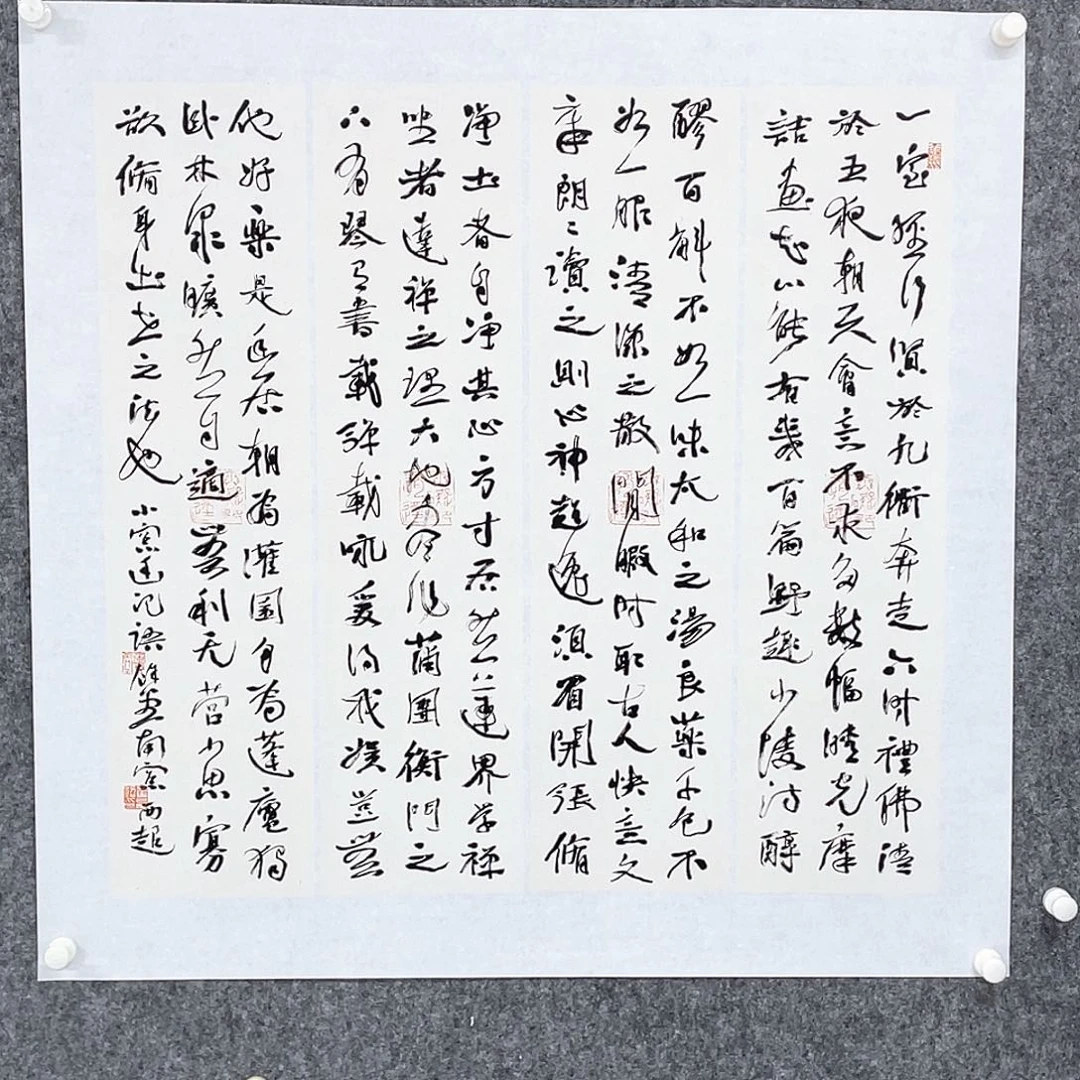 一室經行賢於九衢奔走六時禮佛清
於五夜朝天會意不求多數幅晴光摩
詰畫知心能有幾百篇野趣少陵詩醇
醪百斛不如一味太和之湯良藥千包不
如一服清涼之散閒暇時取古人快意文
章朗〻讀之則心神超逸須眉開張脩
淨土者自淨其心方寸居然蓮界学禪
坐者達禪之理大地盡作蒲團衡門之
下有琴有書載彈載詠爰得我娛豈無
他好樂是幽居朝為灌園夕為蓬廬獨
臥林泉曠然自適無利无营少思寡
欲脩身出世之法也 小窗幽记語 南窗